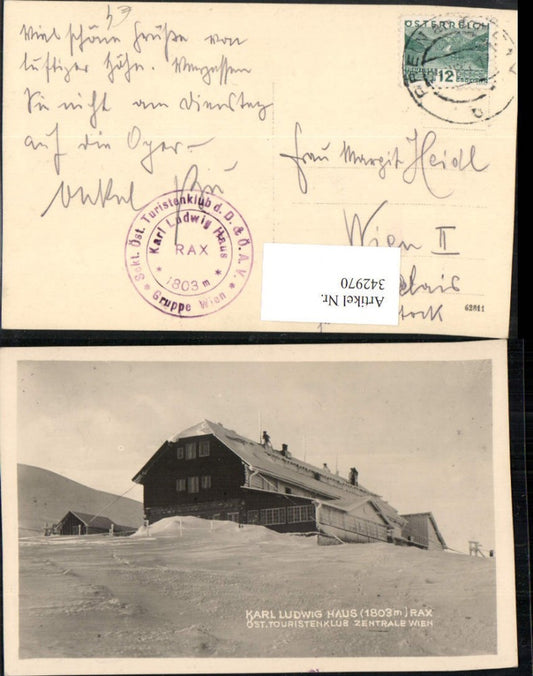 Viel schöne Grüße von
luftiger Höhe. Vergessen
Sie nicht am Dienstag
auf die Oper –
Onkel
ÖSTERREICH
12
GROSCHEN
Frau Margit Heidl
Wien II
Sekt. Öst. Turistenklub d. D. & Ö. A. V.
Karl Ludwig Haus
RAX
* 1803 m *
* Gruppe Wien *
Artikel Nr.
342970
62811
KARL LUDWIG HAUS (1803m) RAX
ÖST. TOURISTENKLUB ZENTRALE WIEN